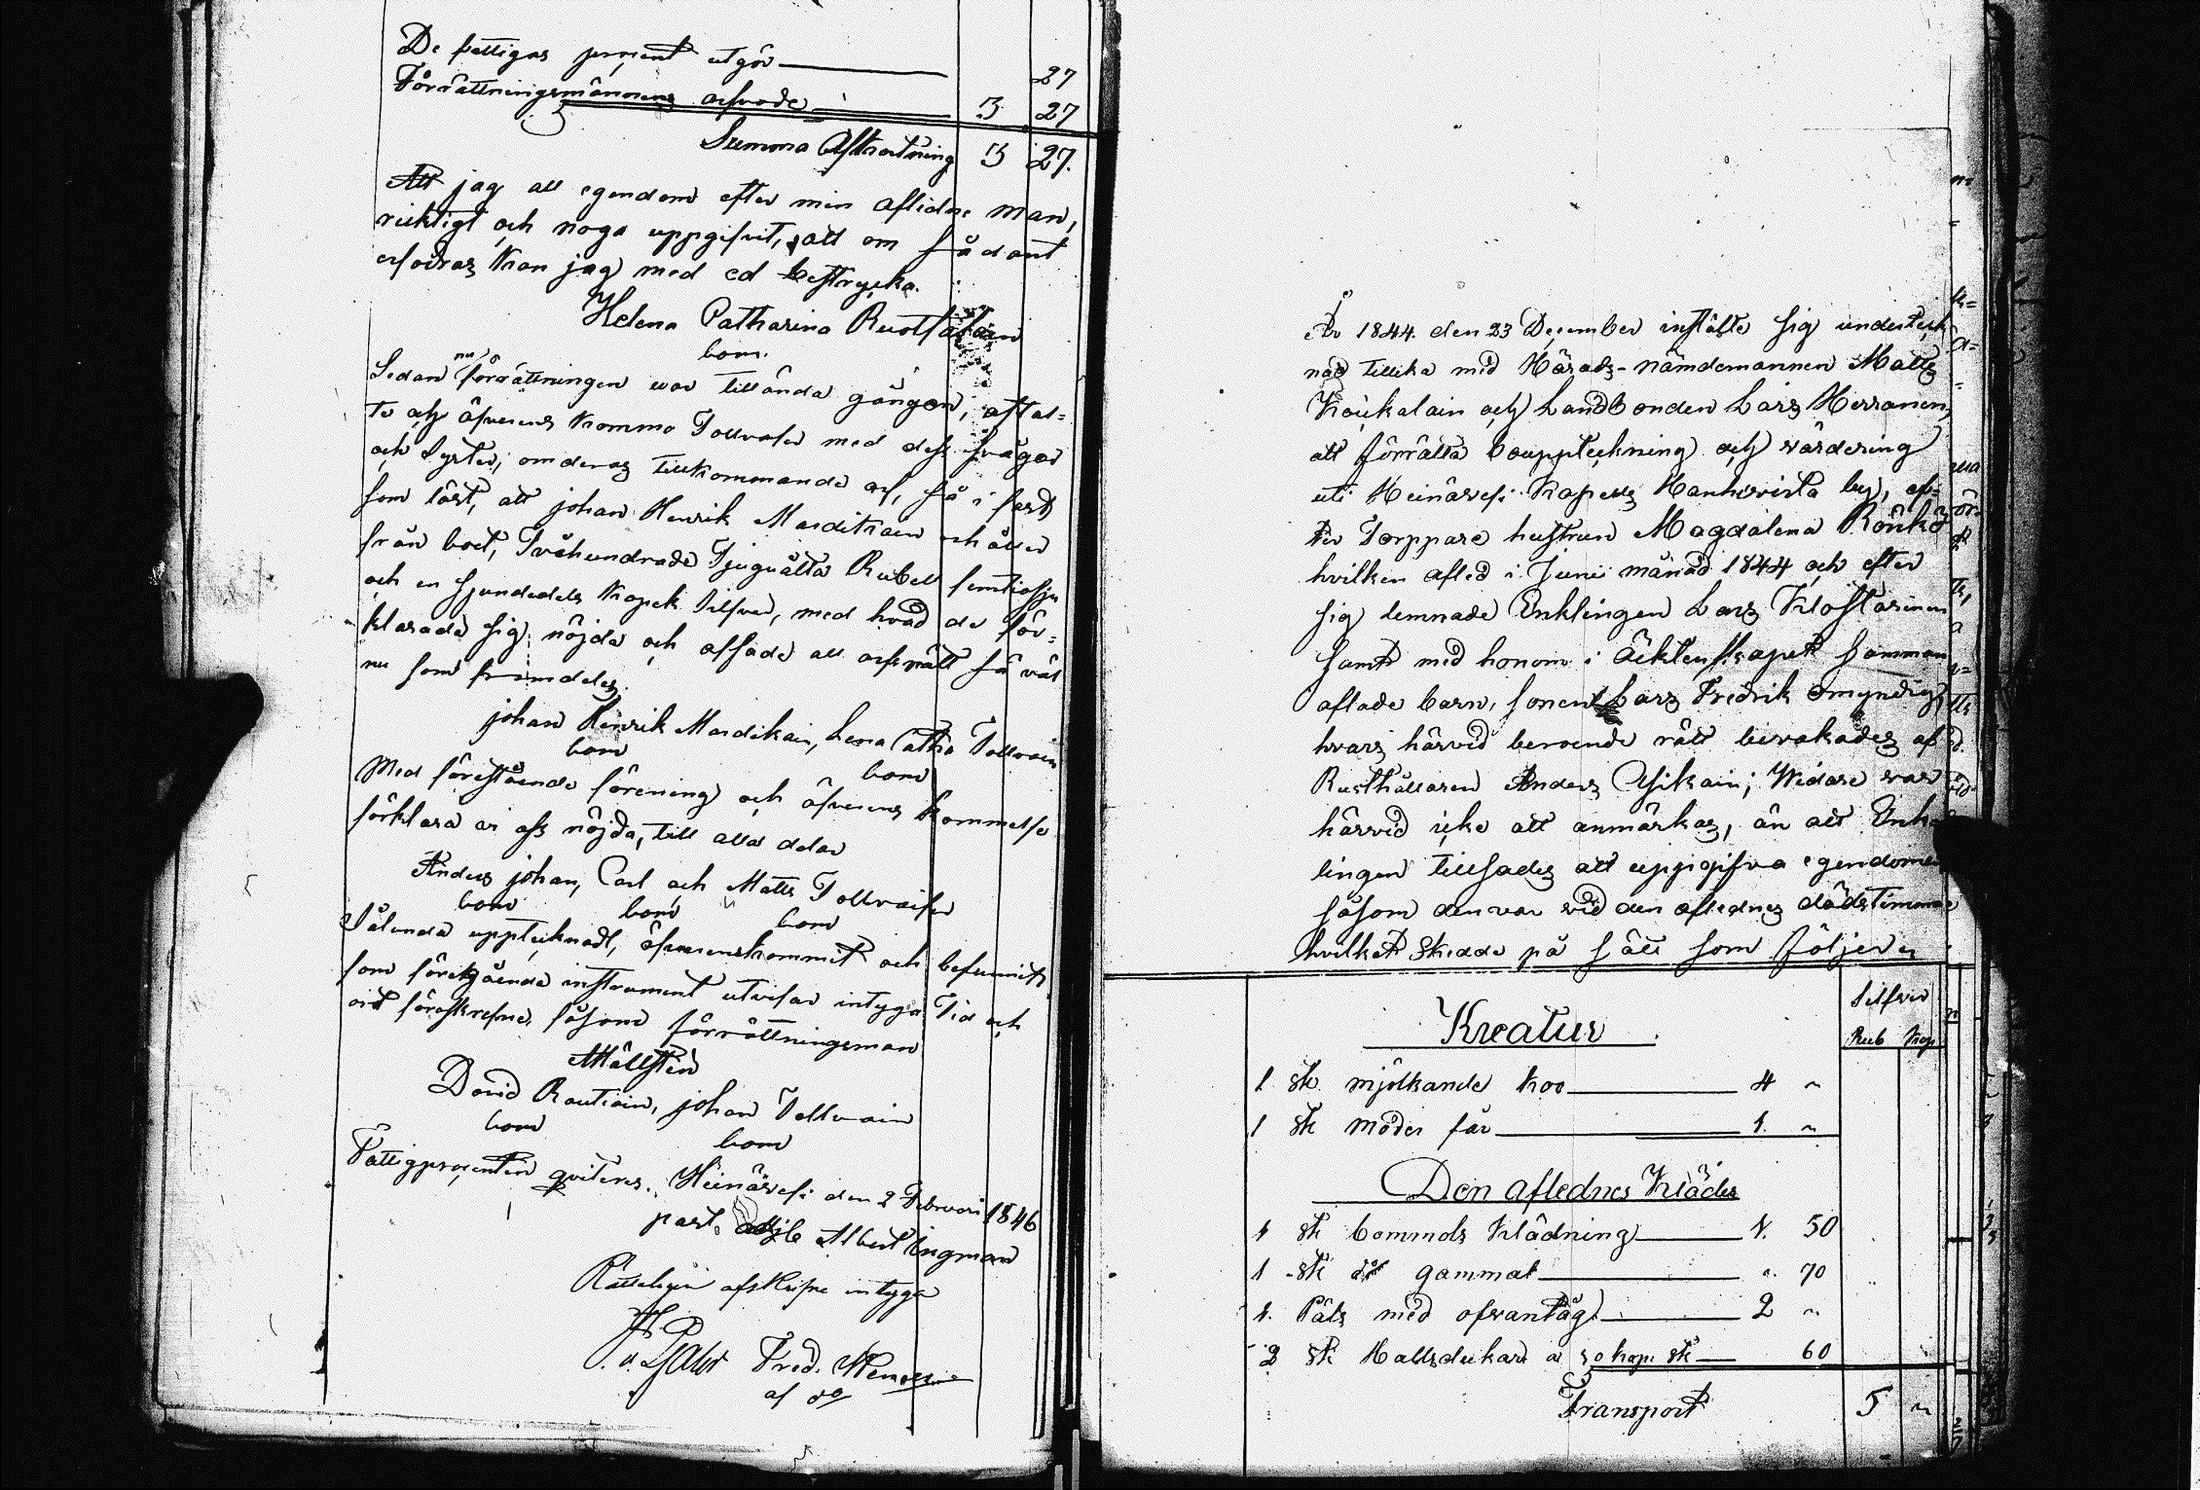 De fattigas procent utgör 27
Förrättningsmännens arfvode 3 27
Summa Afkortning 3 27.
Att jag all egendom efter min aflidne man,
ricktigt och noga uppgifvit, att om sådant
erfodras kan jag med ed bestryka.
Helena Catharina
bom.
Sedan nu förrättningen war tillända gången, aftal=
te och öfverens kommo Tollvaisen med dess svåger
och Syster, om deras tillkommande arf, så i fast
som löst, att johan Henrik Mardikain erhåller
från boet, Tvåhundrade Tjuguåtta Rubel femtiosju
och en sjundedels kopek Silfver, med hvad de för=
klarade sig nöjda och afsade all arfsrätt så väl
nu som framdeles.
johan Henrik Mardikain, Lena Catha Tollvain
bom bom
Med förestående förening och öfverens kommelse
förklara vi oss nöjda, till alla delar
Anders johan, Carl och Matts Tollvaisen
bom bom bom
Sålunda upptecknadt, öfverenskommit och befunnits
som föregående instrument utvisar intyga Tid och
ort föreskrefne, såsom förrättningsman
A Hällsten
David Rautiain, johan Tollvain
bom bom
Fattigprocenten qviteras. Heinävesi den 2 Februari 1846
past. adj: Albert Ingman
Rätteligen afskrifne intyga
Fred.
af do
År 1844 den 23 December instälte sig underteck
nad tillika med Härads-nämdemannen Matts
Koukalain och Landbonden Lars Herranen,
att förrätta bouppteckning och värdering
uti Heinävesi Kapells Hankavirta by, ef=
ter Torppare hustrun Magdalena Rönkö
hvilken afled i Junii månad 1844 och efter
sig lemnade Enklingen Lars Klostarinen
samt med honom i äktenskapet samman
aflade barn, sonen Lars Fredrik omyndig,
hvars härvid beroende rätt bevakades af
Rusthållaren Anders Asikain; Widare var
härvid icke att anmärkas, än att Enk
lingen tillsades att uppgifva egendomen
såsom den var vid den aflednes dödstimma
hvilket skedde på sätt som följer
Silfver
Rub Kop
Kreatur
1 st. mjölkande koo 4 "
1 st moder får 1. "
Den aflednes Kläder
1 st bommols klädning 1. 50
1 st do gammal " 70
1. Päls med ofvantåg 2 "
2 st Halsdukar a 30 kop. st 60
Transport 5 "